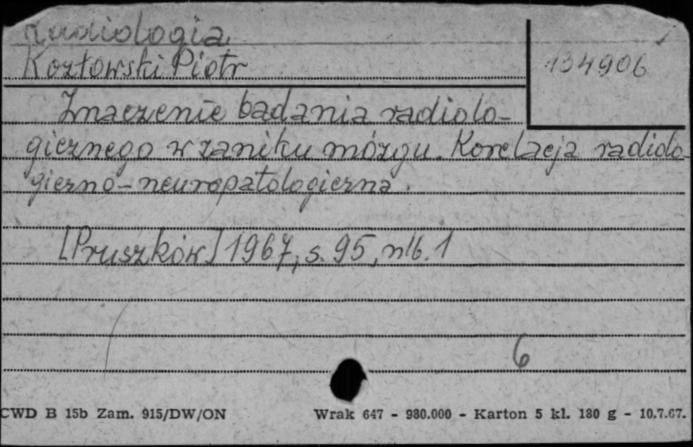 Radiologia
Kozłowski Piotr
134906
Znaczenie badania radiolo-
gicznego w zaniku mózgu. Korelacja radiolo-
giczno-neuropatologiczna.
[Pruszków] 1967, s. 95, nlb. 1
6
CWD B 15b Zam. 915/DW/ON Wrak 647 - 980.000 - Karton 5 kl. 180 g - 10.7.67.